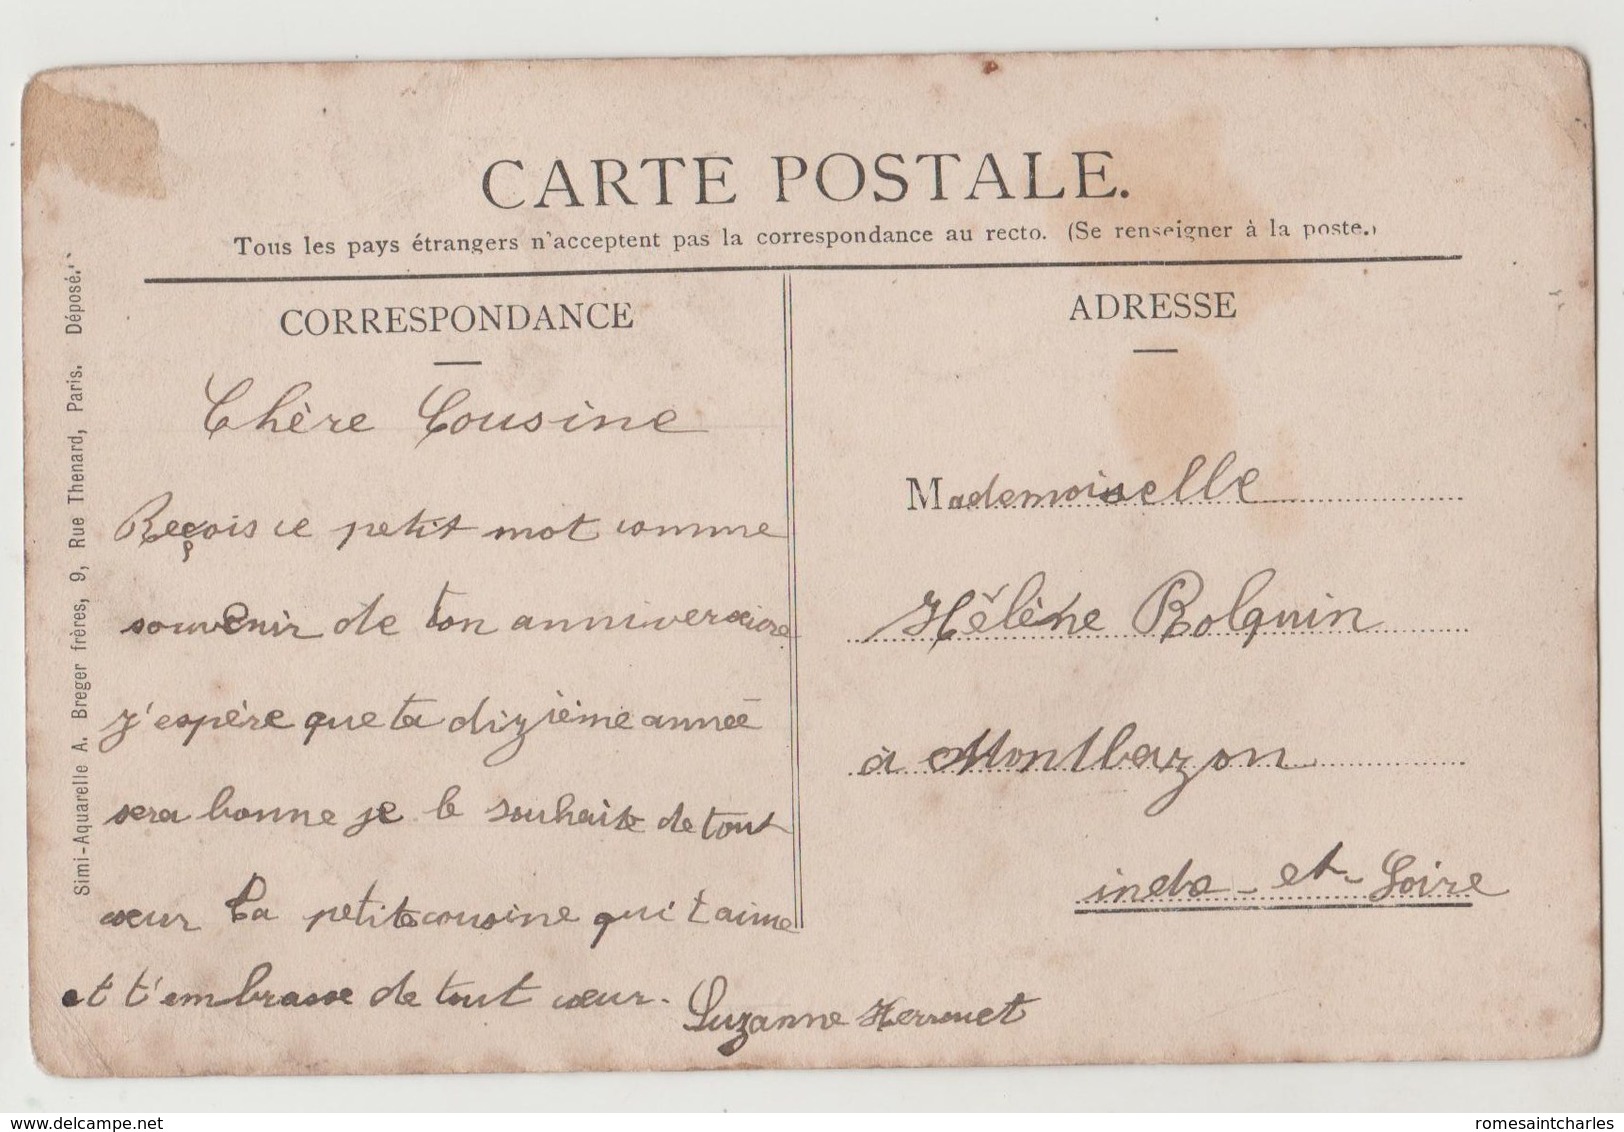 CARTE POSTALE.
Tous les pays étrangers n'acceptent pas la correspondance au recto. (Se renseigner à la poste.)
CORRESPONDANCE
Chère Cousine
Reçois ce petit mot comme
souvenir de ton anniversaire
j'espère que ta dizième année
sera bonne je le souhaite de tout
cœur Ta petite cousine qui t aime
et t'embrasse de tout cœur.
Suzanne Herrouet
ADRESSE
Mademoiselle
Hélène Rolquin
à Montbazon
indre-et-Loire
Simi-Aquarelle A. Breger frères, 9, Rue Thenard, Paris. Déposé.
www.delcampe.net
romesaintcharles